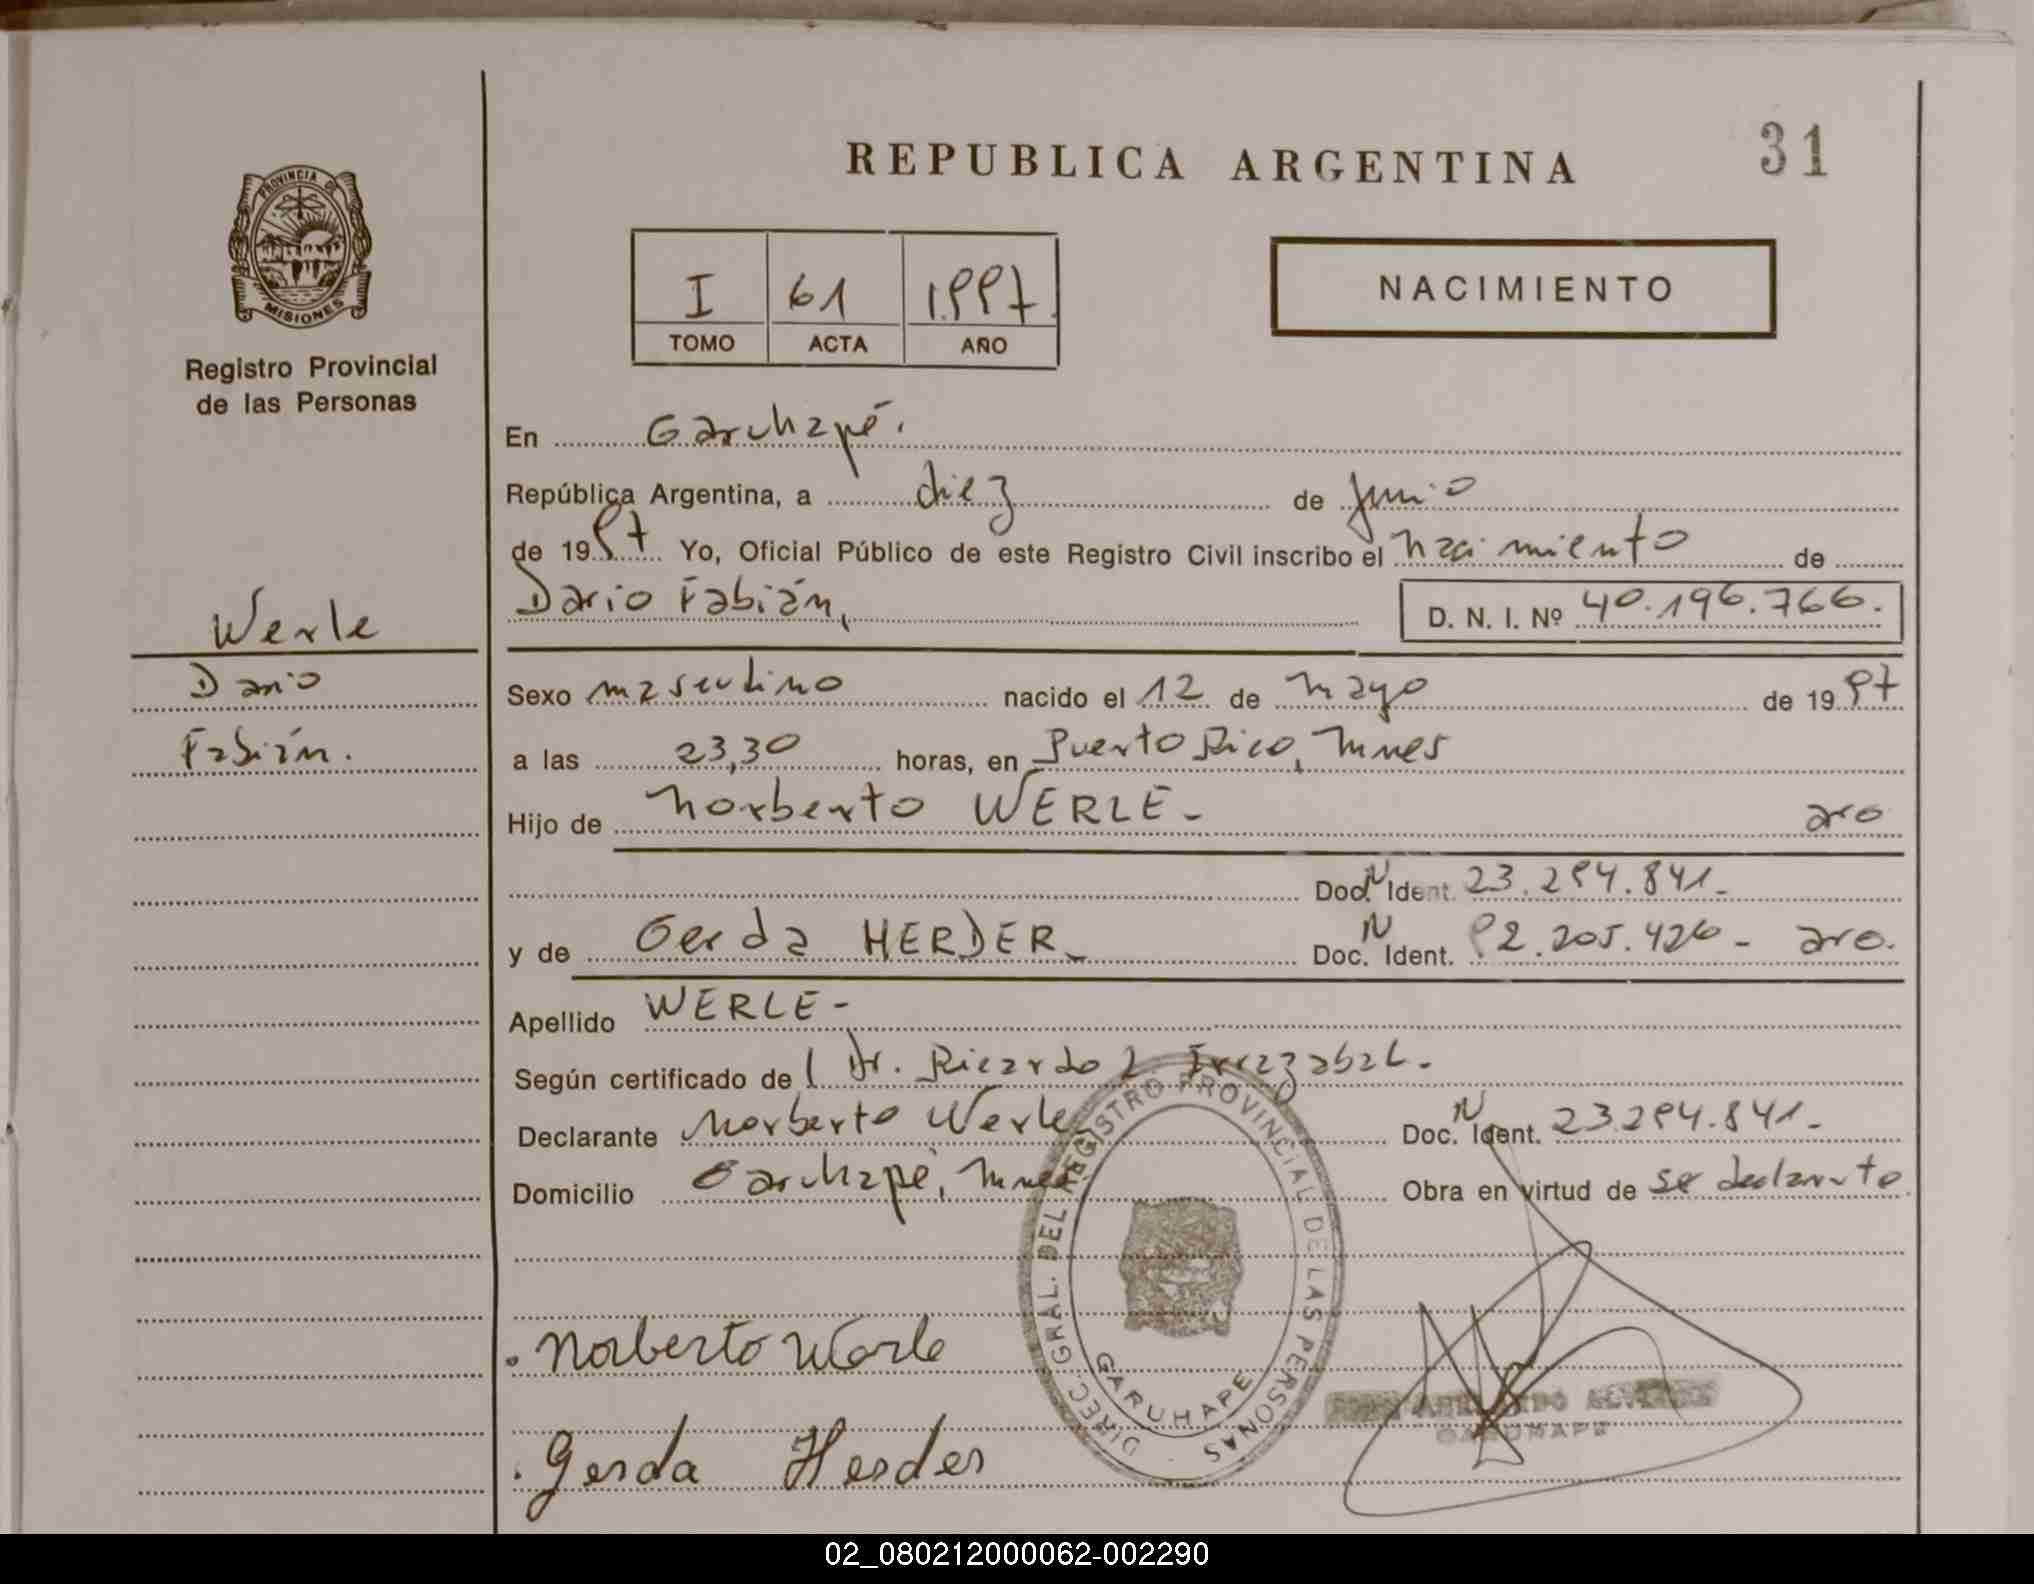 REPUBLICA ARGENTINA
31
PROVINCIA DE
MISIONES
Registro Provincial
de las Personas
I 61 1.997.
TOMO ACTA AÑO
NACIMIENTO
En Garuhapé.
República Argentina, a diez de Junio
de 1997 Yo, Oficial Público de este Registro Civil inscribo el nacimiento de
Dario Fabián, D. N. I. Nº 40.196.766.
Werle
Dario
Fabián.
Sexo masculino nacido el 12 de mayo de 1997
a las 23,30 horas, en Puerto Rico, Mnes
Hijo de Norberto WERLE - aro
Doc. N Ident. 23.294.841.-
y de Gerda HERDER - Doc. N Ident. 92.205.426 - aro.
Apellido WERLE -
Según certificado de ( Dr. Ricardo ) Irrazabal.-
Declarante Norberto Werle Doc. N Ident. 23.294.841.-
Domicilio Garuhapé, Mnes Obra en virtud de se declarnto
. Norberto Werle
. Gerda Herder
DIREC. GRAL. DEL REGISTRO PROVINCIAL DE LAS PERSONAS
GARUHAPE
GARUHAPE
02_080212000062-002290